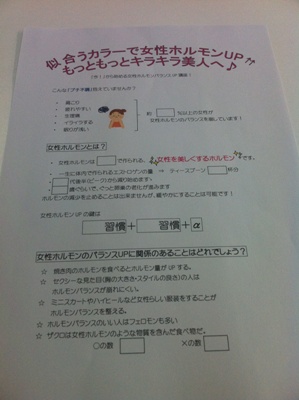 似合うカラーで女性ホルモンUP↑↑
もっともっとキラキラ美人へ♪
こんな「プチ不調」抱えていませんか?
・ 肩こり
・ 疲れやすい
・ 低体温
・ イライラする
・ 眠りが浅い
約 %以上の女性が
女性ホルモンのバランスを崩しています!
女性ホルモンとは?
・ 女性ホルモンは で作られる、「女性を美しくするホルモン」です。
・ 一生に体内で作られるエストロゲンの量 ⇒ ティースプーン 杯分
・ 代後半(ピーク)から減り始めます。
・ 歳ぐらいで、ぐっと卵巣の老化が進みます
ホルモンの減少を止めることは出来ませんが、緩やかにすることは可能です!
女性ホルモンUPの鍵は
習慣+ 習慣+α
女性ホルモンのバランスUPに関係のあることはどれでしょう?
☆ 焼き肉のホルモンを食べるとホルモン量がUPする。
☆ セクシーな見た目(胸の大きさ・スタイルの良さ)の人は
ホルモンバランスが崩れにくい。
☆ ミニスカートやハイヒールなど女性らしい服装をすることが
ホルモンバランスを整える。
☆ ホルモンバランスのいい人はフェロモンも多い
☆ ザクロは女性ホルモンのような物質を含んだ食べ物だ。
○の数 ×の数